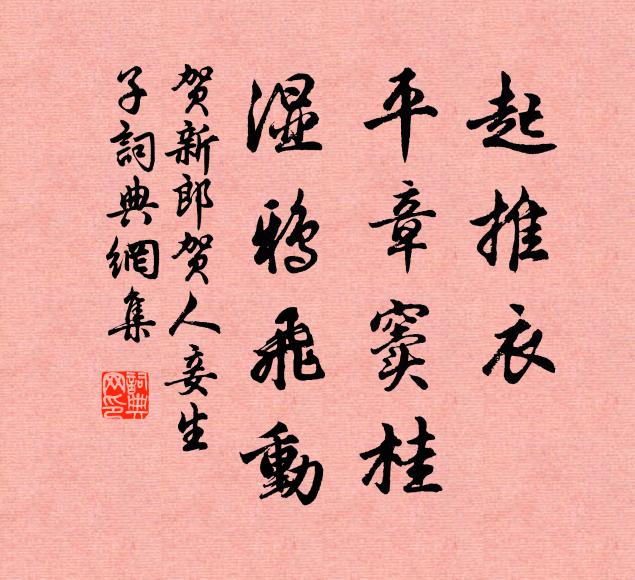 起推衣
平章窦桂
湿鸦飛動
贺新郎贺人妾生
子詞典網集
詞典
网印